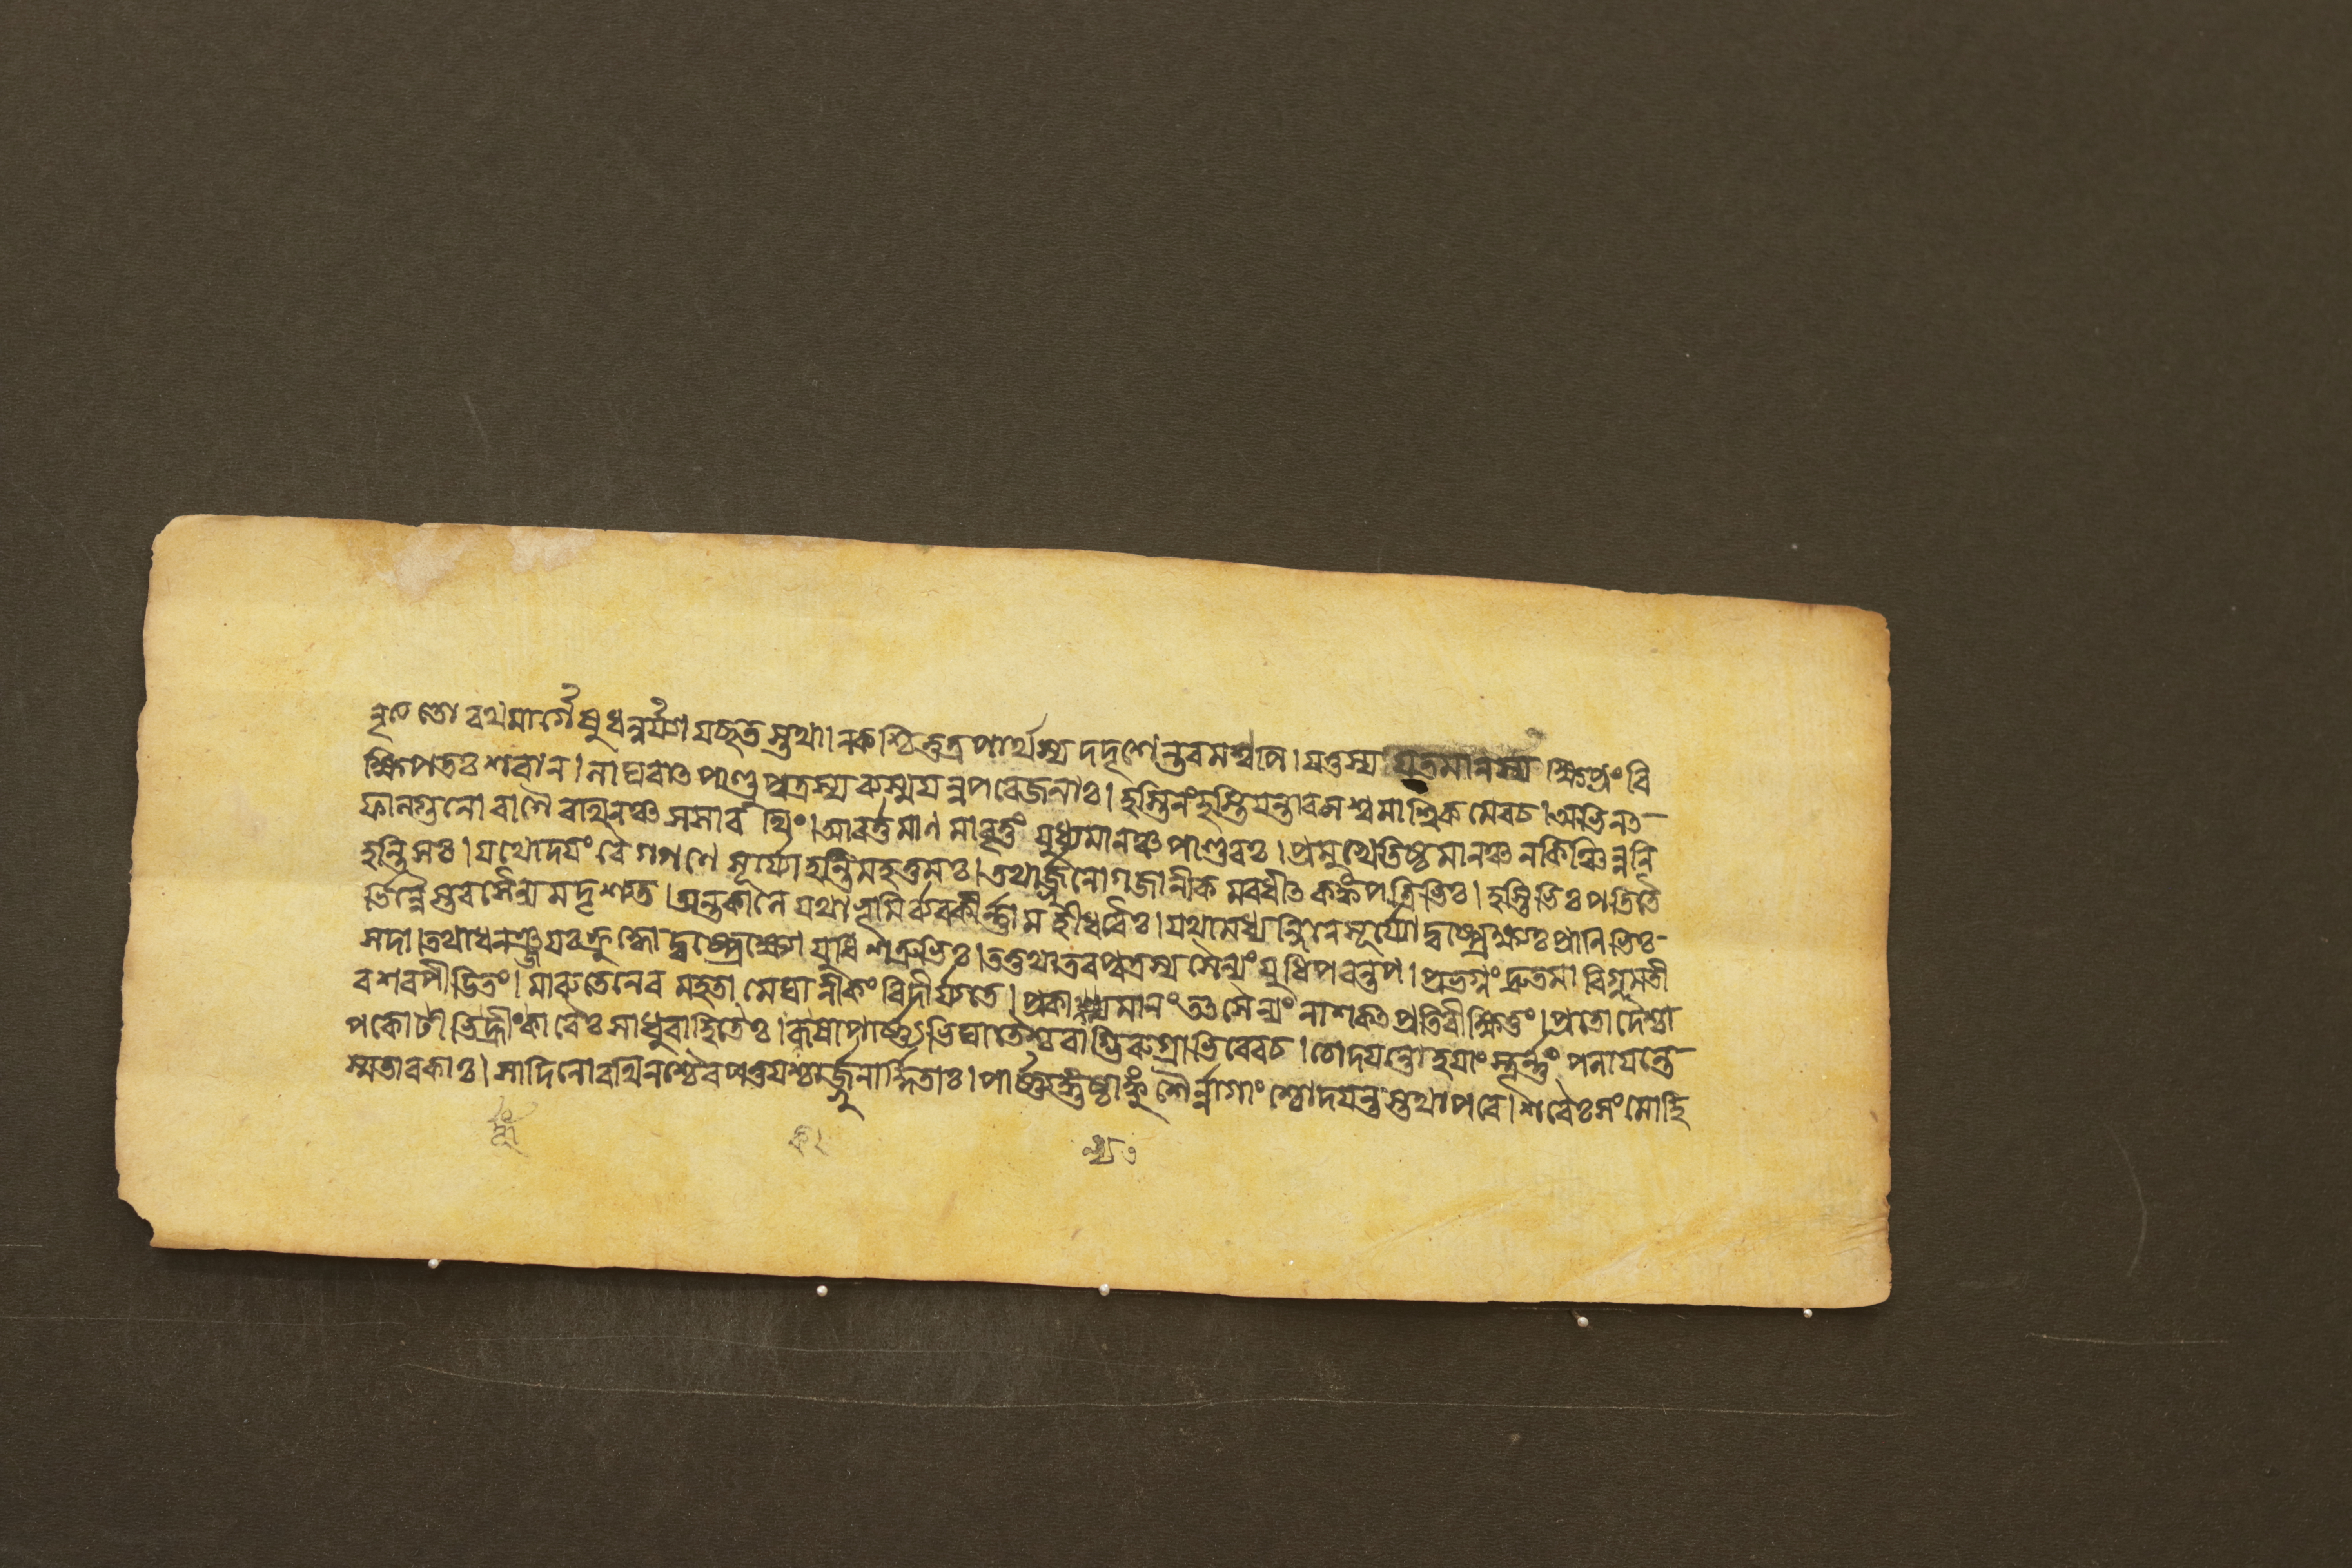 নৃত্যতো রথমার্গেষু ধনুর্ব্যায়চ্ছতস্তথা। ন কশ্চিত্তত্র পার্থস্য দদৃশেন্তরমণ্বপি। যত্তস্য যতমানস্য ক্ষিপ্রং বি
ক্ষিপতঃ শরান। লাঘবাৎ পাণ্ডুপুত্রস্য ব্যস্ময়ন্ত পরেজনাঃ। হস্তিনং হস্তিযন্তারমশ্বমাশ্বিকমেবচ। অভিনৎ
ফালগুনো বাণৈ রথিনঞ্চ সসারথিং। আবর্ত্তমানমাবৃত্তং যুধ্যমানঞ্চ পাণ্ডবঃ। প্রমুখে তিষ্ঠমানঞ্চ নকিঞ্চিন্ননি
হন্তি সঃ। যথোদয়ং বৈ গগণে সূর্য্যো হন্তি মহত্তমঃ। তথার্জ্জুনোগজানীকমবধীৎ কঙ্কপত্রিভিঃ। হস্তিভিঃ পতিতৈ
র্ভিন্নৈস্তব সৈন্যমদৃশ্যত। অন্তকালে যথা ভূমির্ব্ববকীর্ন্না মহীধরৈঃ। যথামধ্যন্দিনে সূর্য্যো দুষ্প্রেক্ষঃ প্রানিভিঃ
সদা। তথাধনঞ্জয়ঃ ক্রুদ্ধো দুষ্প্রেক্ষো যুধি শত্রুভিঃ। তত্তথা তবপুত্রস্য সৈন্যং যুধিপরন্তপ। প্রভগ্নং দ্রুতমাবিগ্নমতী
বশরপীডিতং। মারুতেনেব মহতা মেঘানীকং বিদীর্য্যতে। প্রকাল্যমানং তৎসৈন্যং নাশকৎ প্রতিবীক্ষিতুং। প্রতোদৈশ্চা
পকোটীভির্হুঁকারৈঃ সাধুবাহিতৈঃ। কষাপার্ষ্ণ্যভিঘাতৈশ্চ বাগ্ভিরুগ্রাভিরেবচ। চোদয়ন্তো হয়াংস্তূর্ন্নং পলায়ন্তে
স্মতাবকাঃ। সাদিনো রথিনশ্চৈব পত্তয়শ্চার্জ্জুনার্দ্দিতাঃ। পার্ষ্ণ্যঙ্গুষ্ঠাঙ্কুশৈর্ন্নাগাংশ্চোদয়ন্তস্তথাপরে। শরৈঃ সংমোহি